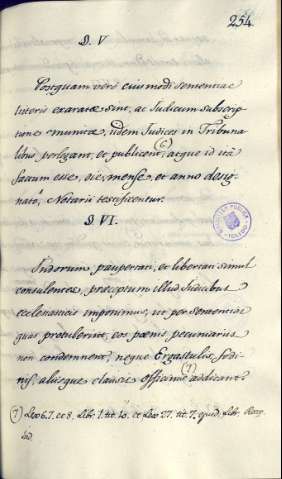 254.
§. V
Postquam verò eiusmodi sententiae
litteris exaratae sint, ac Iudicum subscrip-
tione munitae, iidem Iudices in Tribuna-
libus perlegant, et publicent, atque id ità
factum esse, die, mense, et anno desig-
nato, Notarii testificentur.
§. VI.
Indorum paupertati, et libertati simul
consulentes, praeceptum illud Iudicibus
ecclesiasticis imponimus, ut per sententias
quas protulerint, eos poenis pecuniariis
non condemnent, neque Ergastulis, fodi-
nis, aliisque clausis officinis (7) addicant.
(7) Lex 6. 7. et 8. Libr. 1. tit. 10. et Lex 27. tit. 7. Libr.
BIBLIOTECA PUBLICA
TOLEDO